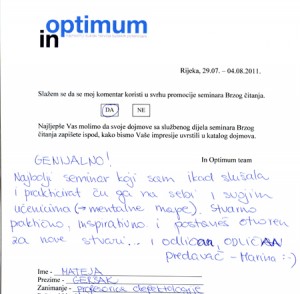 in optimum
Rijeka, 29.07. – 04.08.2011.
Slažem se da se moj komentar koristi u svrhu promocije seminara Brzog čitanja.
DA NE
Najljepše Vas molimo da svoje dojmove sa službenog dijela seminara Brzog
čitanja zapišete ispod, kako bismo Vaše impresije uvrstili u katalog dojmova.
GENIJALNO! In Optimum team
Najbolji seminar koji sam ikad slušala
i prakticirat ću ga na sebi i svojim
učenicima (→ mentalne mape). Stvarno
praktično, inspirativno i postaneš otvoren
za nove stvari... i odličan, ODLIČAN
predavač – Marino :-)
Ime - MATEJA
Prezime - GERŠAK
Zanimanje - profesorica defektologije